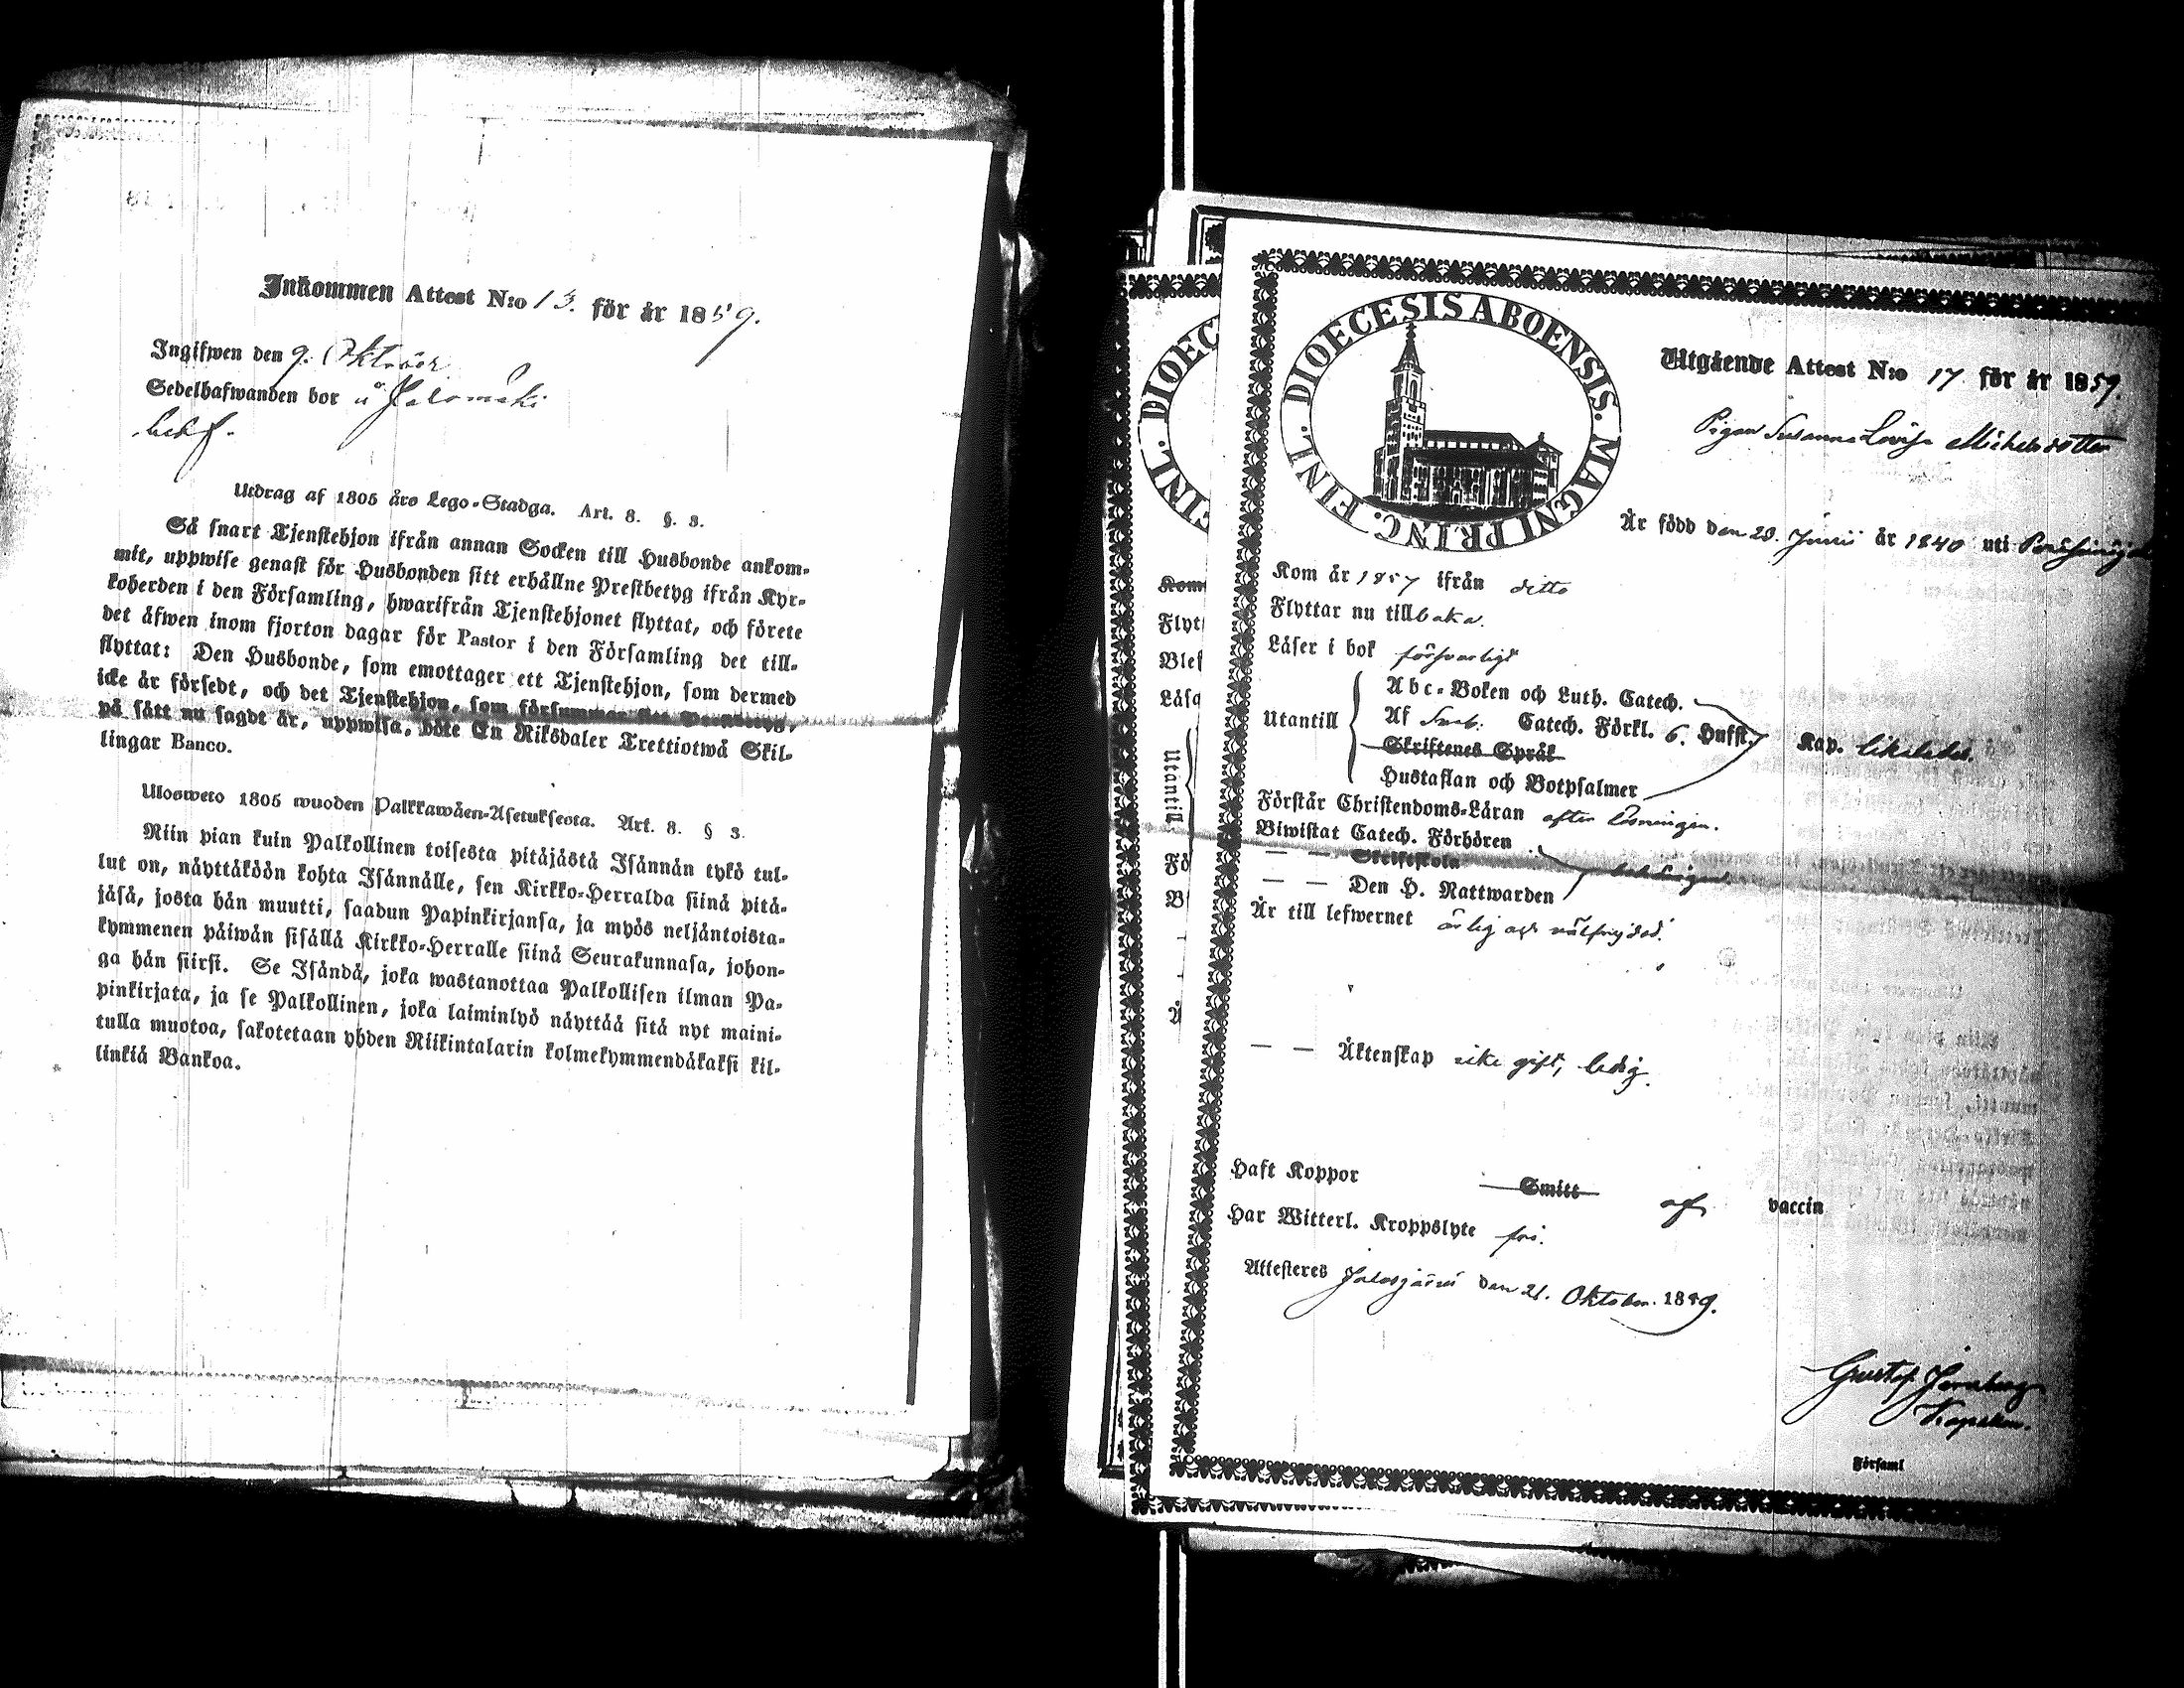 Inkommen Attest N:o 13. för år 1859.
Ingifwen den 9. Oktober
Sedelhafwanden bor å Jalomäki
Utdrag af 1805 års Lego-Stadga. Art. 8. §. 3.
Så snart Tjenstehjon ifrån annan Socken till Husbonde ankom-
mit, uppwise genast för Husbonden sitt erhållne Prestbetyg ifrån Kyr-
koherden i den Församling, hwarifrån Tjenstehjonet flyttat, och förete
det åfwen inom fjorton dagar för Pastor i den Församling det till-
flyttat: Den Husbonde, som emottager ett Tjenstehjon, som dermed
icke är försedt, och det Tjenstehjon, som försummar sitt
på sått nu sagdt är, uppwisa, böte En Riksdaler Trettiotwå Skil-
lingar Banco.
Ulosweto 1805 wuoden Palkkawäen-Asetuksesta. Art. 8. § 3.
Niin pian kuin Palkollinen toisesta pitäjästä Isännän tykö tul-
lut on, näyttäköön kohta Isännälle, sen Kirkko-Herralda siinä pitä-
jäsä, josta hän muutti, saadun Papinkirjansa, ja myös neljäntoista-
kymmenen päiwän sisällä Kirkko-Herralle siinä Seurakunnasa, johon-
ga hän siirsi. Se Isändä, joka wastanottaa Palkollisen ilman Pa-
pinkirjata, ja se Palkollinen, joka laiminlyö näyttää sitä nyt maini-
tulla muotoa, sakotetaan yhden Riikintalarin kolmekymmendäkaksi kil-
linkiä Bankoa.
DIOECESIS ABOENSIS. MAGNI PRINC. FINL.
Utgående Attest N:o 17 för år 1859.
Pigan Susanna Lovisa Michelsdotter
Är född den 28. Junii år 1840 uti
Kom år 1857 ifrån ditto
Flyttar nu tillbaka.
Läser i bok försvarligt
Utantill
Abc-Boken och Luth. Catech.
Af Sveb. Catech. Förkl. 6. Hufst. Kap. likaledes.
Skriftenes Språk
Hustaflan och Botpsalmer
Förstår Christendoms-Läran efter läsningen.
Biwistat Catech. Förhören
— — Skriftskola
— — Den H. Nattwarden
Är till lefwernet ärlig och välfrejdad.
— — Äktenskap icke gift, ledig.
Haft Koppor Smitt af vaccin
Har Witterl. Kroppslyte fri.
Attesteres Jalasjärvi den 21. Oktober. 1859.
Gustaf
Kapellan.
Församl